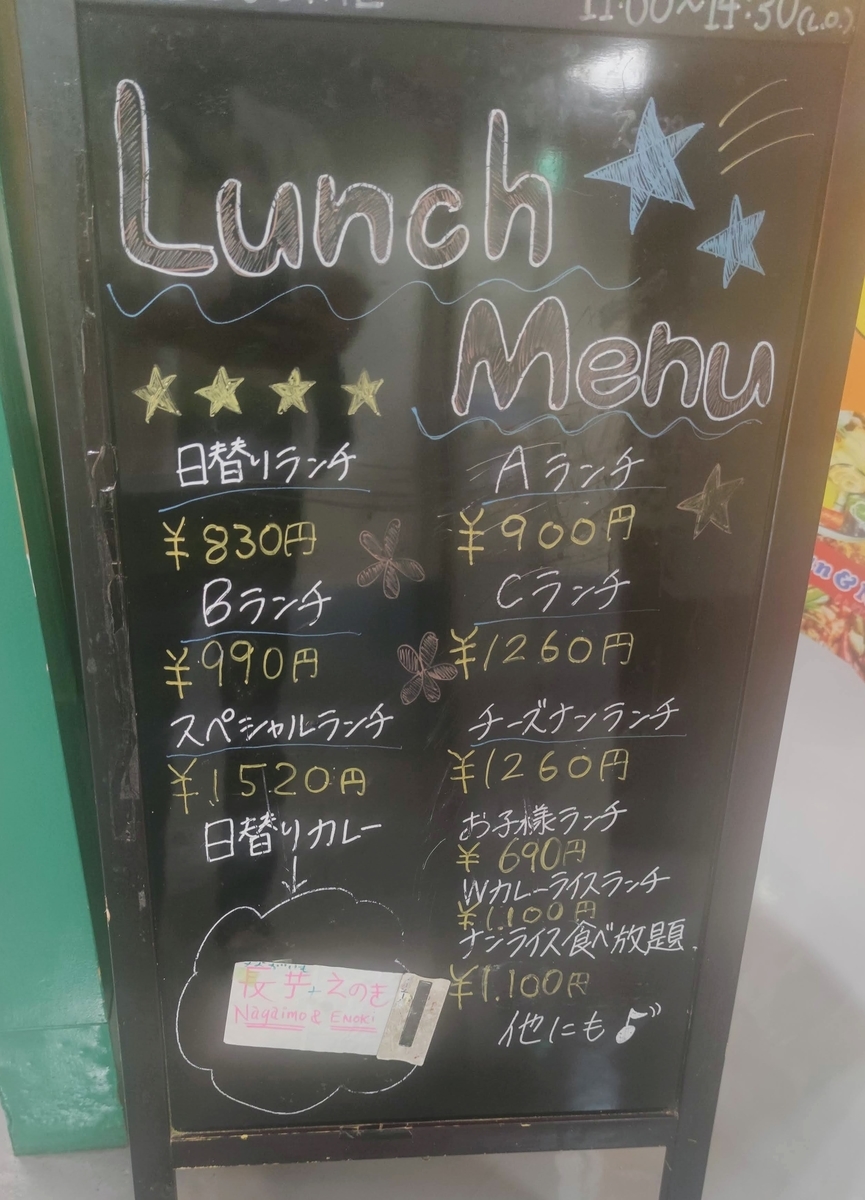 11:00~14:30(L.O.)
Lunch
Menu
日替りランチ
¥830円
Aランチ
¥900円
Bランチ
¥990円
Cランチ
¥1260円
スペシャルランチ
¥1520円
チーズナンランチ
¥1260円
日替りカレー
お子様ランチ
¥690円
Wカレーライスランチ
¥1.100円
ナンライス食べ放題
¥1.100円
他にも
長芋+えのき
Nagaimo & ENOKI